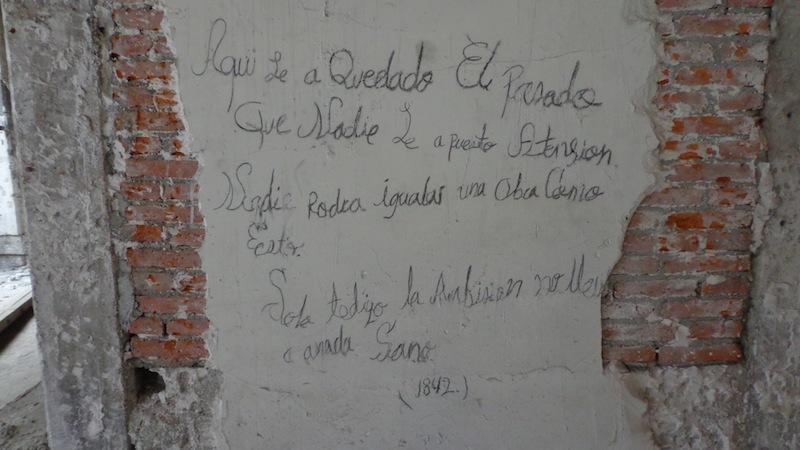 Aqui se a Quedado El Pasado
Que Nadie Le a puesto Atension
Nadie Podra igualar una Obra Cómo
Esta
Solo te digo la Ambision no lleva
a anada Sano
(1842.)